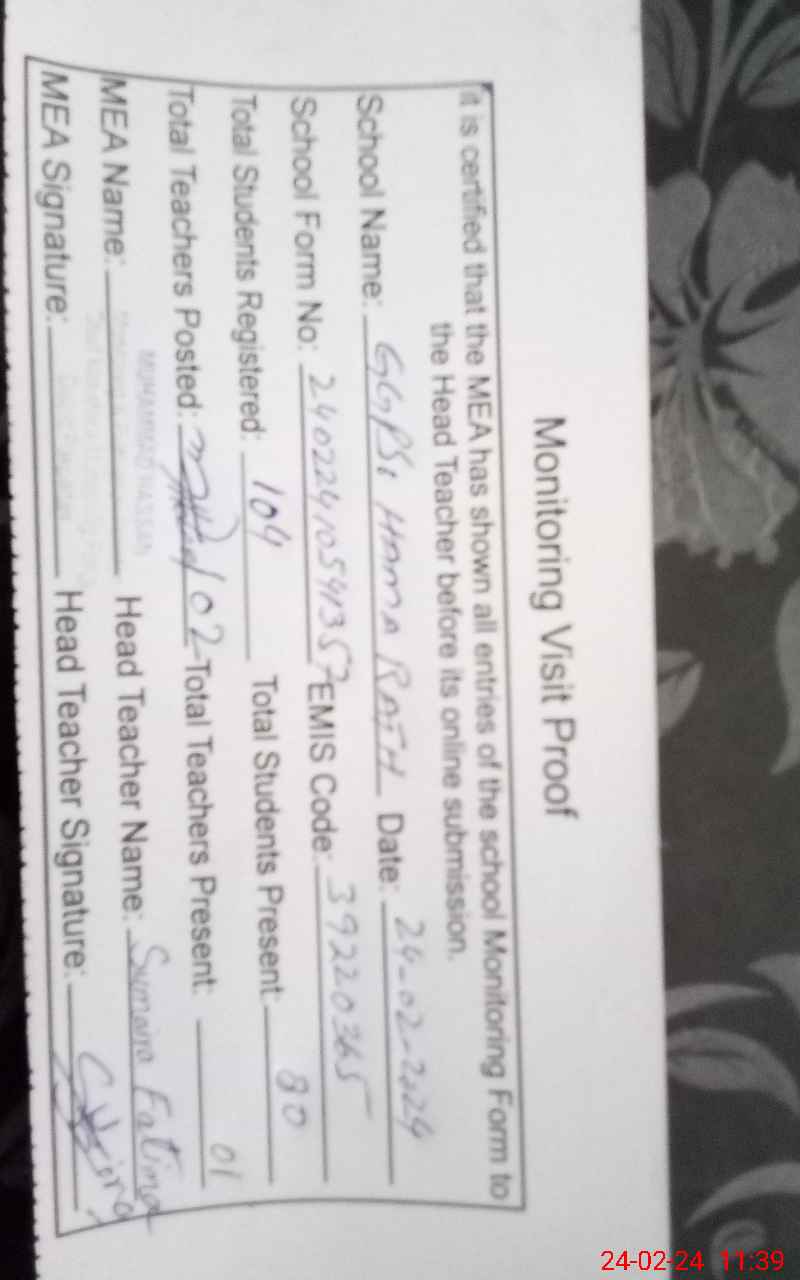 Monitoring Visit Proof
it is certified that the MEA has shown all entries of the school Monitoring Form to
the Head Teacher before its online submission.
School Name: GGPS, HAMA RATH Date: 24-02-2024
School Form No: EMIS Code: 39220365
Total Students Registered: 104 Total Students Present: 80
Total Teachers Posted: 02 Total Teachers Present: 01
MUHAMMAD HASSAN
MEA Name: Head Teacher Name: Sumaira Fatima
MEA Signature: Head Teacher Signature:
24-02-24 11:39